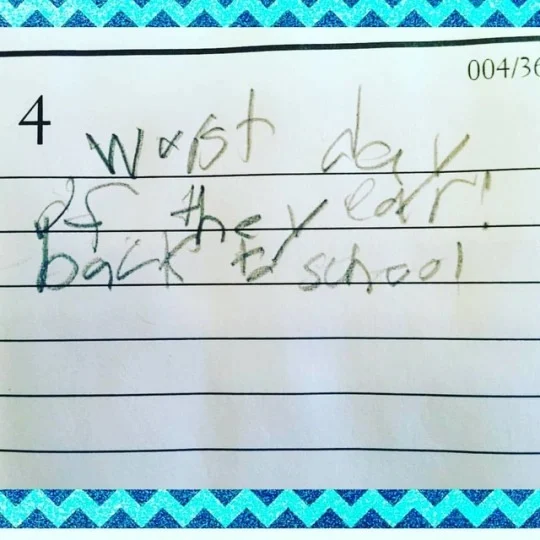 004/36
4
worst day
of the year!
back to school